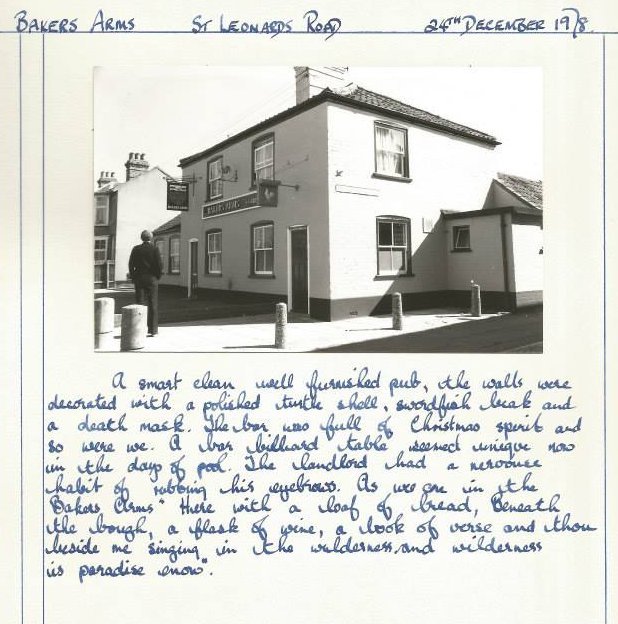 BAKERS ARMS ST LEONARDS ROAD 24TH DECEMBER 1978.
BAKERS ARMS
A smart clean well furnished pub, the walls were
decorated with a polished turtle shell, swordfish beak and
a death mask. The bar was full of Christmas spirit and
so were we. A bar billiard table seemed unique now
in the days of pool. The landlord had a nervouse
habit of rubbing his eyebrows. As we are in the
Bakers Arms "Here with a loaf of bread, Beneath
the bough, a flask of wine, a book of verse and thou
beside me singing in the wilderness, and wilderness
is paradise enow".